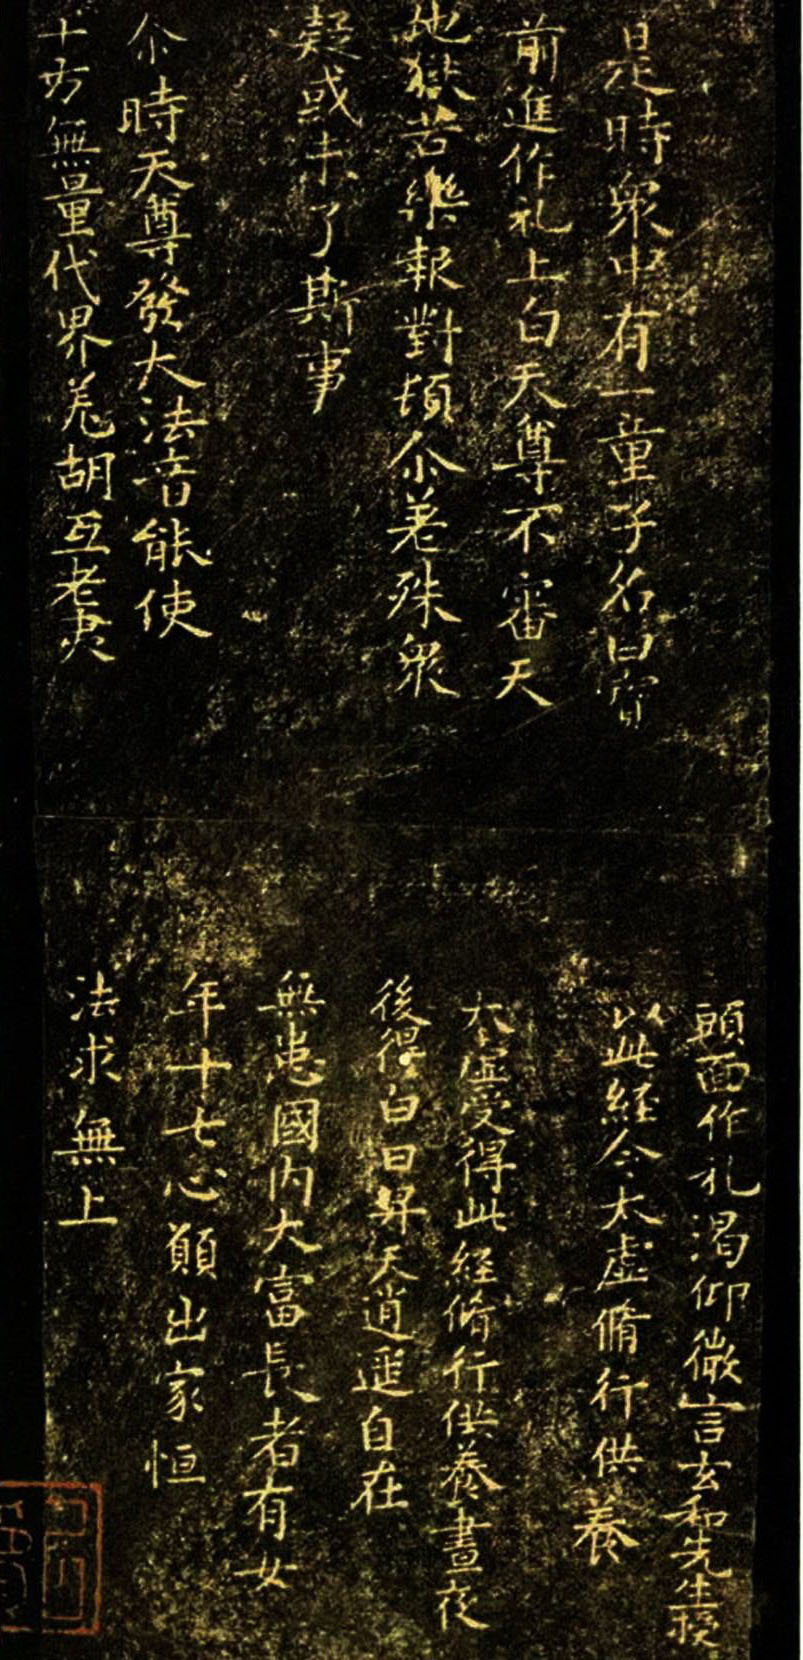 是時衆中有一童子名曰寳
前進作礼上白天尊不審天
地獄苦樂報對頓尒差殊衆
疑或未了斯事
尒時天尊發大法音能使
十方無量代界羌胡互老夷
頭面作礼渴仰微言玄和先生授
以此經令太虛脩行供養
太虛受得此經脩行供養晝夜
後得白日昇天逍遥自在
無恚國内大富長者有女
年十七心願出家恒
法求無上